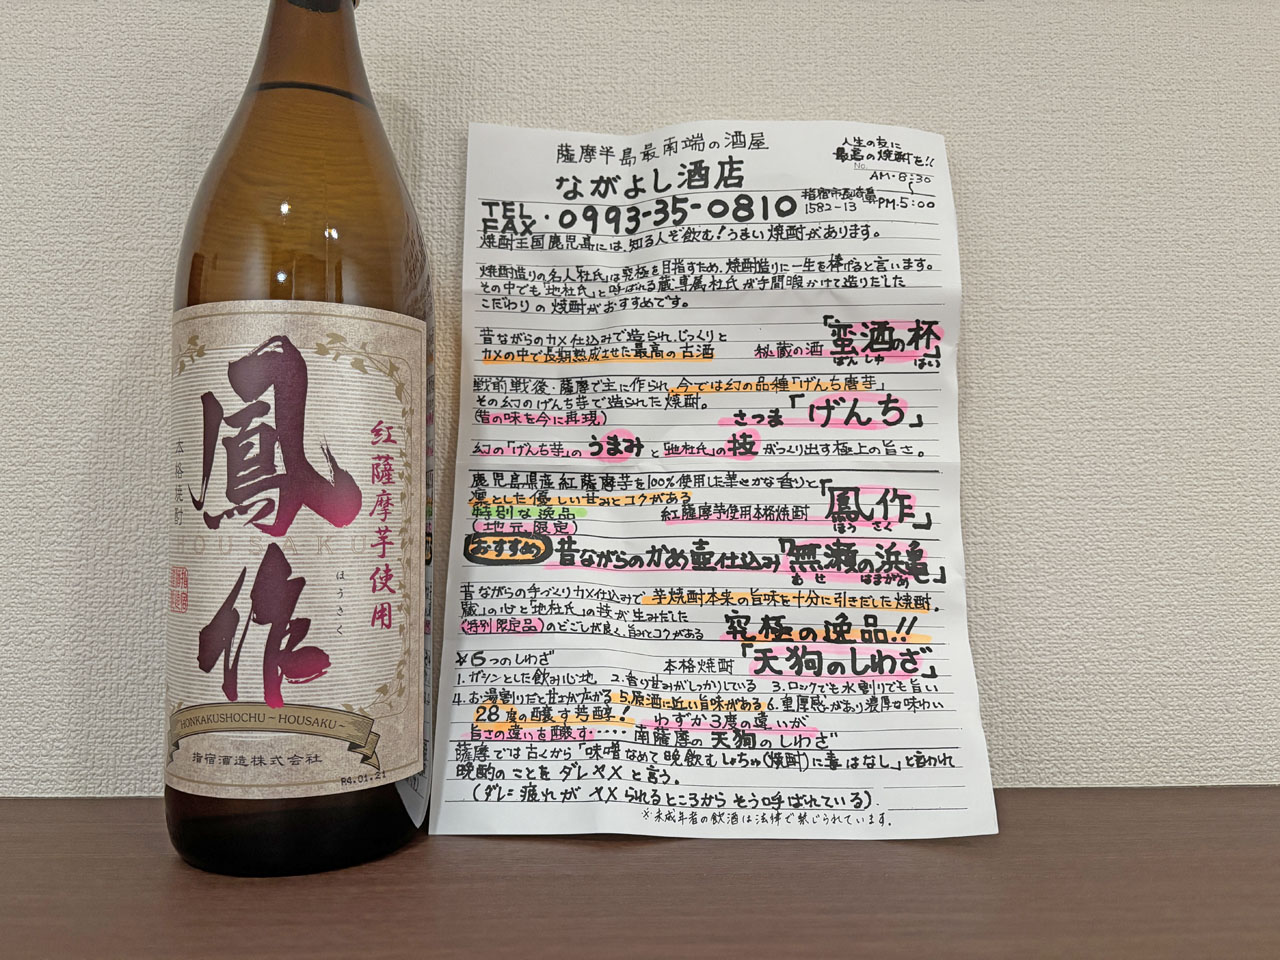 鳳作
紅薩摩芋使用
本格焼酎
HOUSAKU
ほうさく
HONKAKUSHOCHU ~ HOUSAKU ~
指宿酒造株式会社
R4.01.21
薩摩半島最南端の酒屋
ながよし酒店
人生の友に
最高の焼酎を!!
No.
AM・8:30
〜
PM.5:00
TEL
FAX・0993-35-0810
指宿市
1582-13
焼酎王国鹿児島には、知る人ぞ飲む!うまい焼酎があります。
焼酎造りの名人「杜氏」は究極を目指すため、焼酎造りに一生を捧げると言います。
その中でも「地杜氏」と呼ばれる蔵専属杜氏が手間暇かけて造りだした
こだわりの焼酎がおすすめです。
昔ながらのカメ仕込みで造られ、じっくりと
カメの中で長期熟成させた最高の古酒
秘蔵の酒「蛮酒の杯」
ばんしゅ はい
戦前戦後・薩摩で主に作られ、今では幻の品種「げんち唐芋」
その幻のげんち芋で造られた焼酎。
(昔の味を今に再現)
さつま「げんち」
幻の「げんち芋」のうまみと「地杜氏」の技がつくり出す極上の旨さ。
鹿児島県産紅薩摩芋を100%使用した華やかな香りと
凛とした優しい甘みとコクがある
特別な逸品
(地元限定)
紅薩摩芋使用本格焼酎「鳳作」
ほうさく
おすすめ 昔ながらのかめ壺仕込み「無瀬の浜亀」
むせ はまがめ
昔ながらの手づくりカメ仕込みで芋焼酎本来の旨味を十分に引きだした焼酎。
蔵」の心と「地杜氏」の技が生みだした
(特別限定品)のどごしが良く、旨みとコクがある
究極の逸品!!
¥6つのしわざ
本格焼酎「天狗のしわざ」
1.ガツンとした飲み心地 2.香り甘みがしっかりしている 3.ロックでも水割りでも旨い
4.お湯割りだと甘さが広がる 5.原酒に近い旨味がある 6.重厚感があり濃厚な味わい
28度の醸す芳醇! わずか3度の違いが
旨さの違いを醸す・・・・・南薩摩の天狗のしわざ
薩摩では古くから「味噌なめて晩飲むしょちゅ(焼酎)に毒はなし」と言われ
晩酌のことをダレヤメと言う。
(ダレ=疲れがヤメられるところからそう呼ばれている)
※未成年者の飲酒は法律で禁じられています。